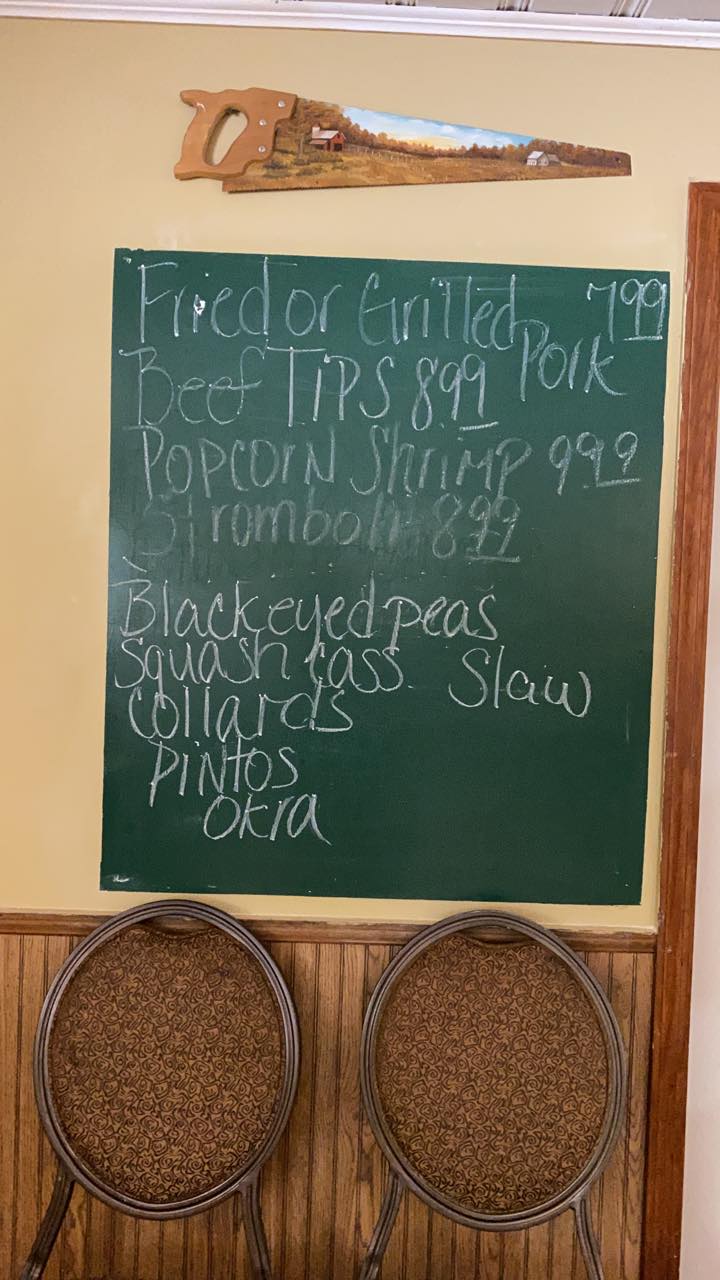 Fried or Grilled Pork 7 99
Beef TIPS 8 99
POPCORN Shrimp 9 99
Stromboli 8 99
Blackeyed peas
Squash cass. Slaw
collards
PINtos
okra